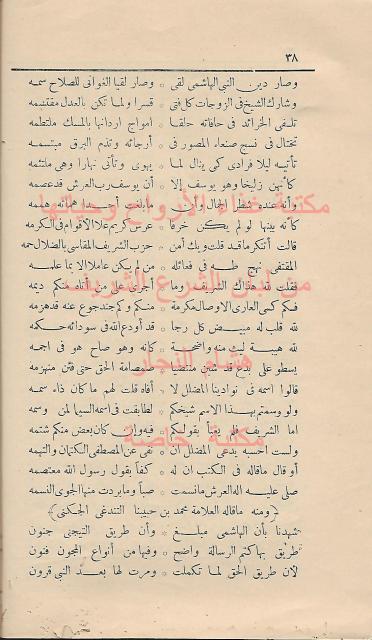 ٣٨
وصار دين النبي الهاشمي لقى * وصار لقيا الغواني للصلاح سمه
وشارك الشيخ في الزوجات كل فتى * قسرا ولما تكن بالعدل مقتسمه
تلفى الخرائد في حافاته حلقا * امواج اردانها بالمسك ملتطمه
تختال في نسج صنعاء المصور في * أرجائه وتذم البرق مبتسمه
تأتيه ليلا فرادى كي ينال لما * يهوى وتأتي نهارا وهي ملتئمه
كأنهن زليخا وهو يوسف إلا * أن يوسف رب العرش قد عصمه
وأنه عنده شطر الجمال وان * ما بلغت أحدا همانه هممه
كأنه بينها لو لم يكن خرفا * عرش كريم علا الأقوام في الكرمه
قالت أتنكر ما قد قلت ويك أمن * حزب الشريف المقاسي بالضلال حمه
المقتفى نهج طه في فعائله * من لم يكن عاملا الا بما علمه
فقلت لله هذاك الشريف وما * أجرى على من أتاه فكم ديمه
فكم كسى العاري الاوصال مكرمة * منكم وكم جندجوع عنه قد هزمه
لله قلب له مبيض كل رجا * قد أودع الله في سودائه حكمه
لله هيبة ليث منه واضحة * كأنه وهو صاح هو في اجمه
يسطو على بدع قد شئن منتضيا * صمصامة الحق حتى فئن منهزمه
قالوا اسمه في نوادينا المضلل لا * أفاه قلت لهم ما كان ذاء سمه
ولو وسمتم بهذا الاسم شيخكم * لطابقت في اسمه السيما لمن وسمه
اما الشريف فلم يعبأ بقولكم * فيه وان كان بعض منكم شتمه
ولست احسبه يدعى المضلل ان * نفى عن المصطفى الكتمان والتهمه
أو قال ما قاله في الكتب ان له * كفأ بقول رسول الله معتصمه
صلى عليه اله العرش ما نسمت * صبا وما بردت منها الجوى النسمه
﴿ ومنه ماقاله العلامة محمد بن حبيبنا التندغي الجكني ﴾
شهدنا بأن الهاشمي مبلغ * وأن طريق التيجني جنون
طريق بها كتم الرسالة واضح * وفيها من أنواع المجون فنون
لان طريق الحق لما تكملت * ومرت لها بعد النبي قرون
مكتبة غذاء الأرواح
من لبن الشرع
هشام النجار
مكتبة خاصة